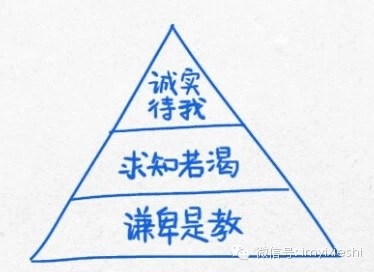 诚实
待我
求知若渴
谦卑是教
微信号: imyixieshi